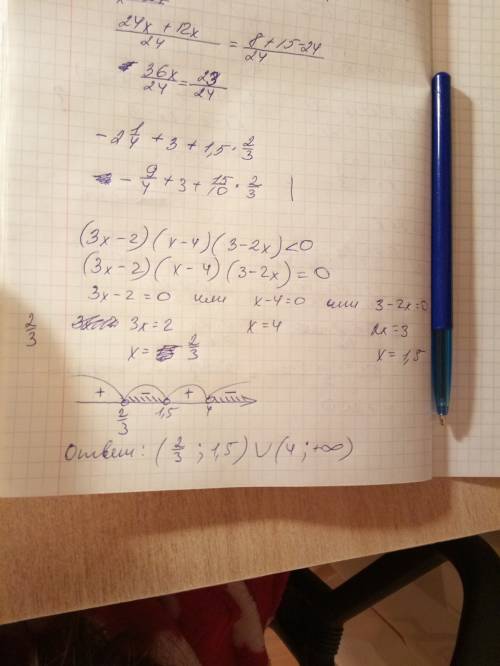 24x + 12x / 24 = 8 + 15 - 24 / 24
36x / 24 = 23 / 24
- 2 1/4 + 3 + 1,5 · 2/3
- 9/4 + 3 + 15/10 · 2/3
(3x-2)(x-4)(3-2x)<0
(3x-2)(x-4)(3-2x)=0
3x-2=0 или x-4=0 или 3-2x=0
2/3 3x=2 x=4 2x=3
x= 2/3 x=1,5
+ - + -
2/3 1,5 4
Ответ: (2/3 ; 1,5) ∪ (4 ; +∞)